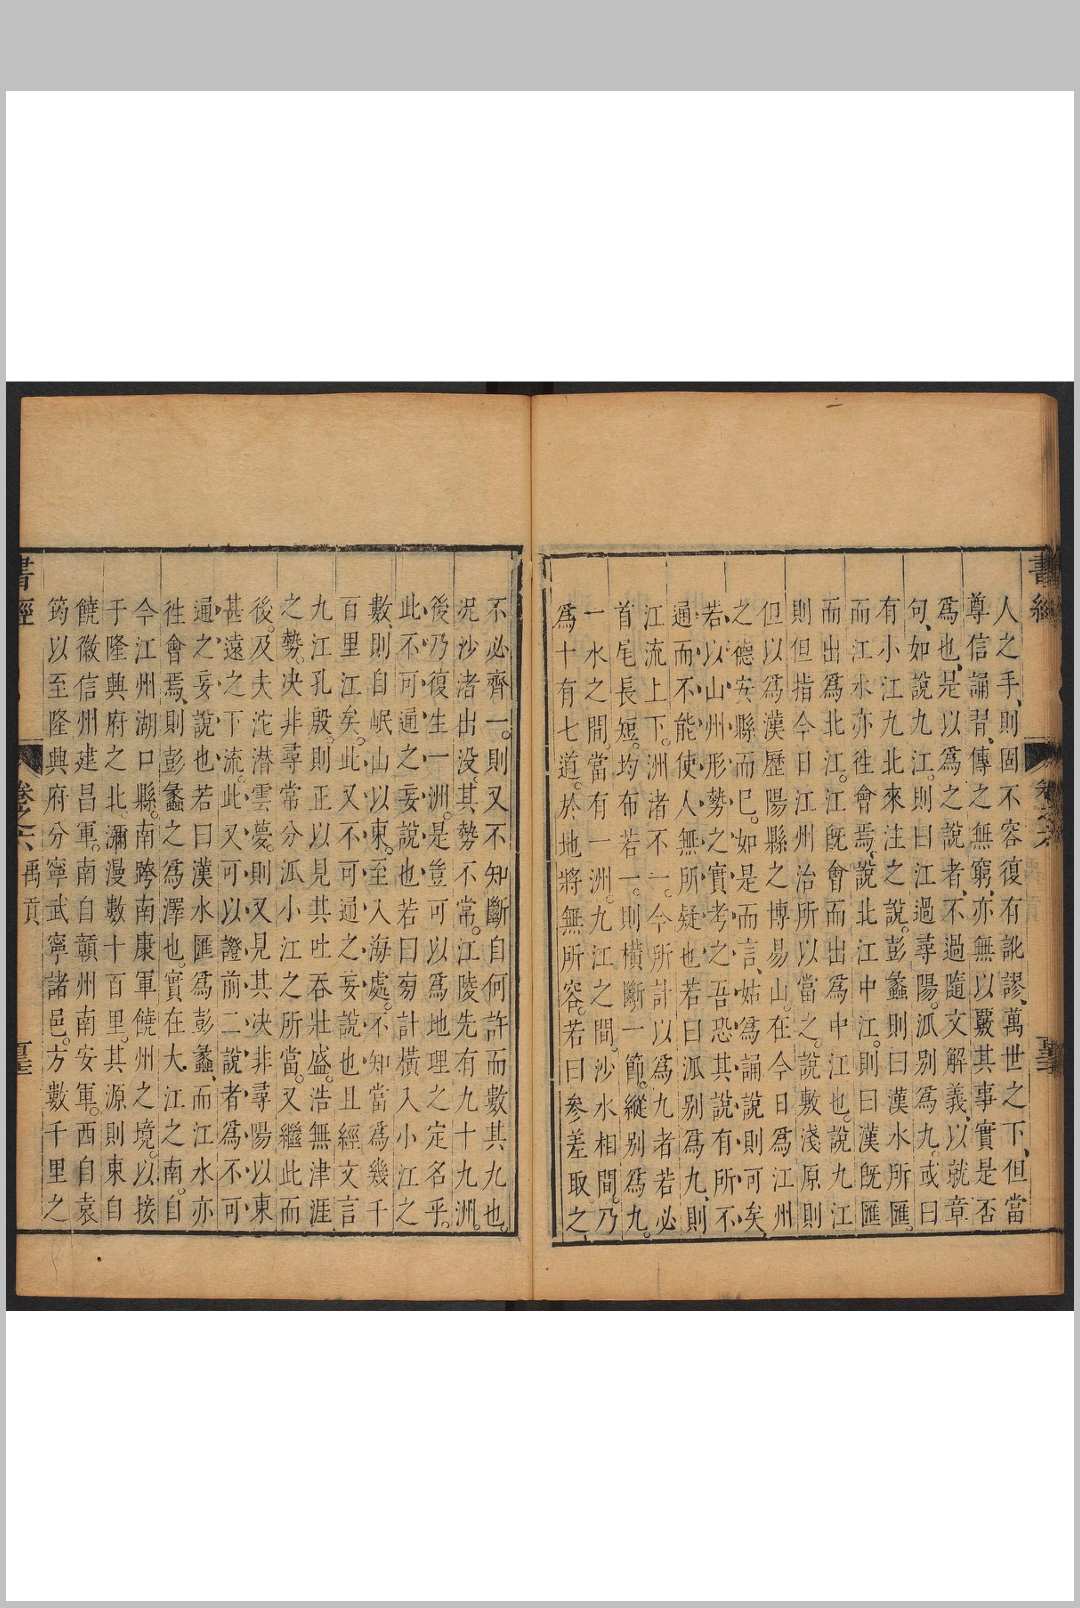 書經
卷之六
人之手、則固不容復有訛謬、萬世之下、但當
尊信誦習、傳之無窮、亦無以覈其事實是否
爲也、是以爲之說者、不過隨文解義、以就章
句、如說九江、則曰江過尋陽、派別爲九、或曰
有小江九北來注之說、彭蠡則曰漢水所匯。
而江水亦徃會焉、說北江中江、則曰漢旣匯
而出爲北江、江旣會而出爲中江也。說九江
則但指今日江州治所以當之。說敷淺原則
但以爲漢歷陽縣之博易山。在今日爲江州
之德安縣而已。如是而言、姑爲誦說則可矣、
若以山州形勢之實考之、吾恐其說有所不
通而不能使人無所疑也若曰派別爲九、則
江流上下。洲渚不一。今所計以爲九者若必
首尾長短。均布若一。則橫斷一節。縱別爲九。
一水之間。當有一洲。九江之間。沙水相間。乃
爲十有七道。於地將無所容。若曰參差取之、
不必齊一。則又不知斷自何許而數其九也。
況沙渚出没、其勢不常。江陵先有九十九洲。
後乃復生一洲。是豈可以爲地理之定名乎。
此不可通之妄說也若曰旁計橫入小江之
數、則自岷山以東。至入海處。不知當爲幾千
百里江矣。此又不可通之妄說也且經文言
九江孔殷。則正以見其吐吞壯盛。浩無津涯
之勢。决非尋常分派小江之所當。又繼此而
後。及夫沱潜雲夢。則又見其决非尋陽以東
甚遠之下流。此又可以證前二說者爲不可
通之妄說也若曰漢水匯爲彭蠡、而江水亦
徃會焉、則彭蠡之爲澤也實在大江之南。自
今江州湖口縣。南跨南康軍饒州之境。以接
于隆興府之北。瀰漫數十百里。其源則東自
饒徽信州建昌軍。南自贛州南安軍。西自袁
筠以至隆興府分寧武寧諸邑。方數千里之
書經
卷之六
禹貢